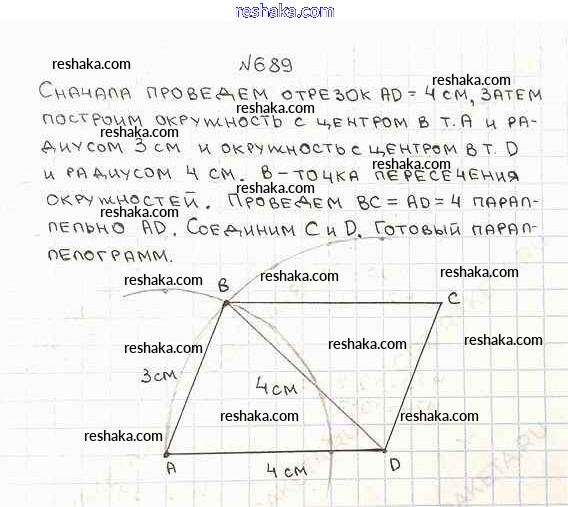 reshaka.com
№689
reshaka.com reshaka.com
СНАЧАЛА ПРОВЕДЕМ ОТРЕЗОК AD = 4 СМ, ЗАТЕМ
ПОСТРОИМ ОКРУЖНОСТЬ С ЦЕНТРОМ В Т. А И РА-
reshaka.com reshaka.com
ДИУСОМ 3 СМ И ОКРУЖНОСТЬ С ЦЕНТРОМ В Т. D
reshaka.com
И РАДИУСОМ 4 СМ. В - ТОЧКА ПЕРЕСЕЧЕНИЯ
ОКРУЖНОСТЕЙ. ПРОВЕДЕМ BC = AD = 4 ПАРАЛ-
reshaka.com reshaka.com
ЛЕЛЬНО AD. СОЕДИНИМ С И D. ГОТОВЫЙ ПАРАЛ-
ЛЕЛОГРАММ.
reshaka.com reshaka.com reshaka.com
B
C
reshaka.com reshaka.com reshaka.com
3 см
4 см
reshaka.com reshaka.com
reshaka.com
A
4 см
D